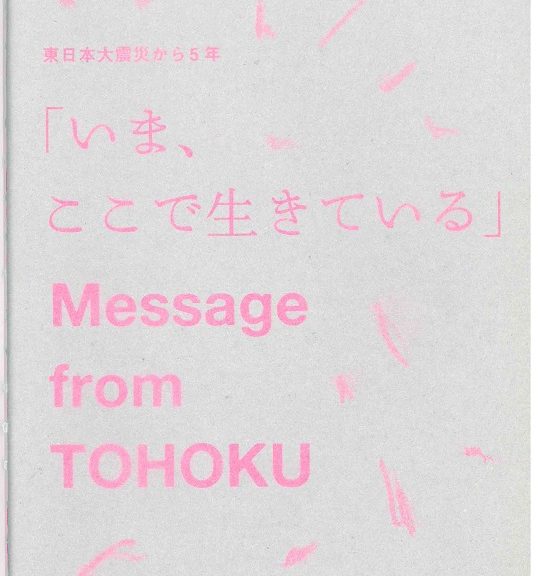 東日本大震災から5年
「いま、
ここで生きている」
Message
from
TOHOKU